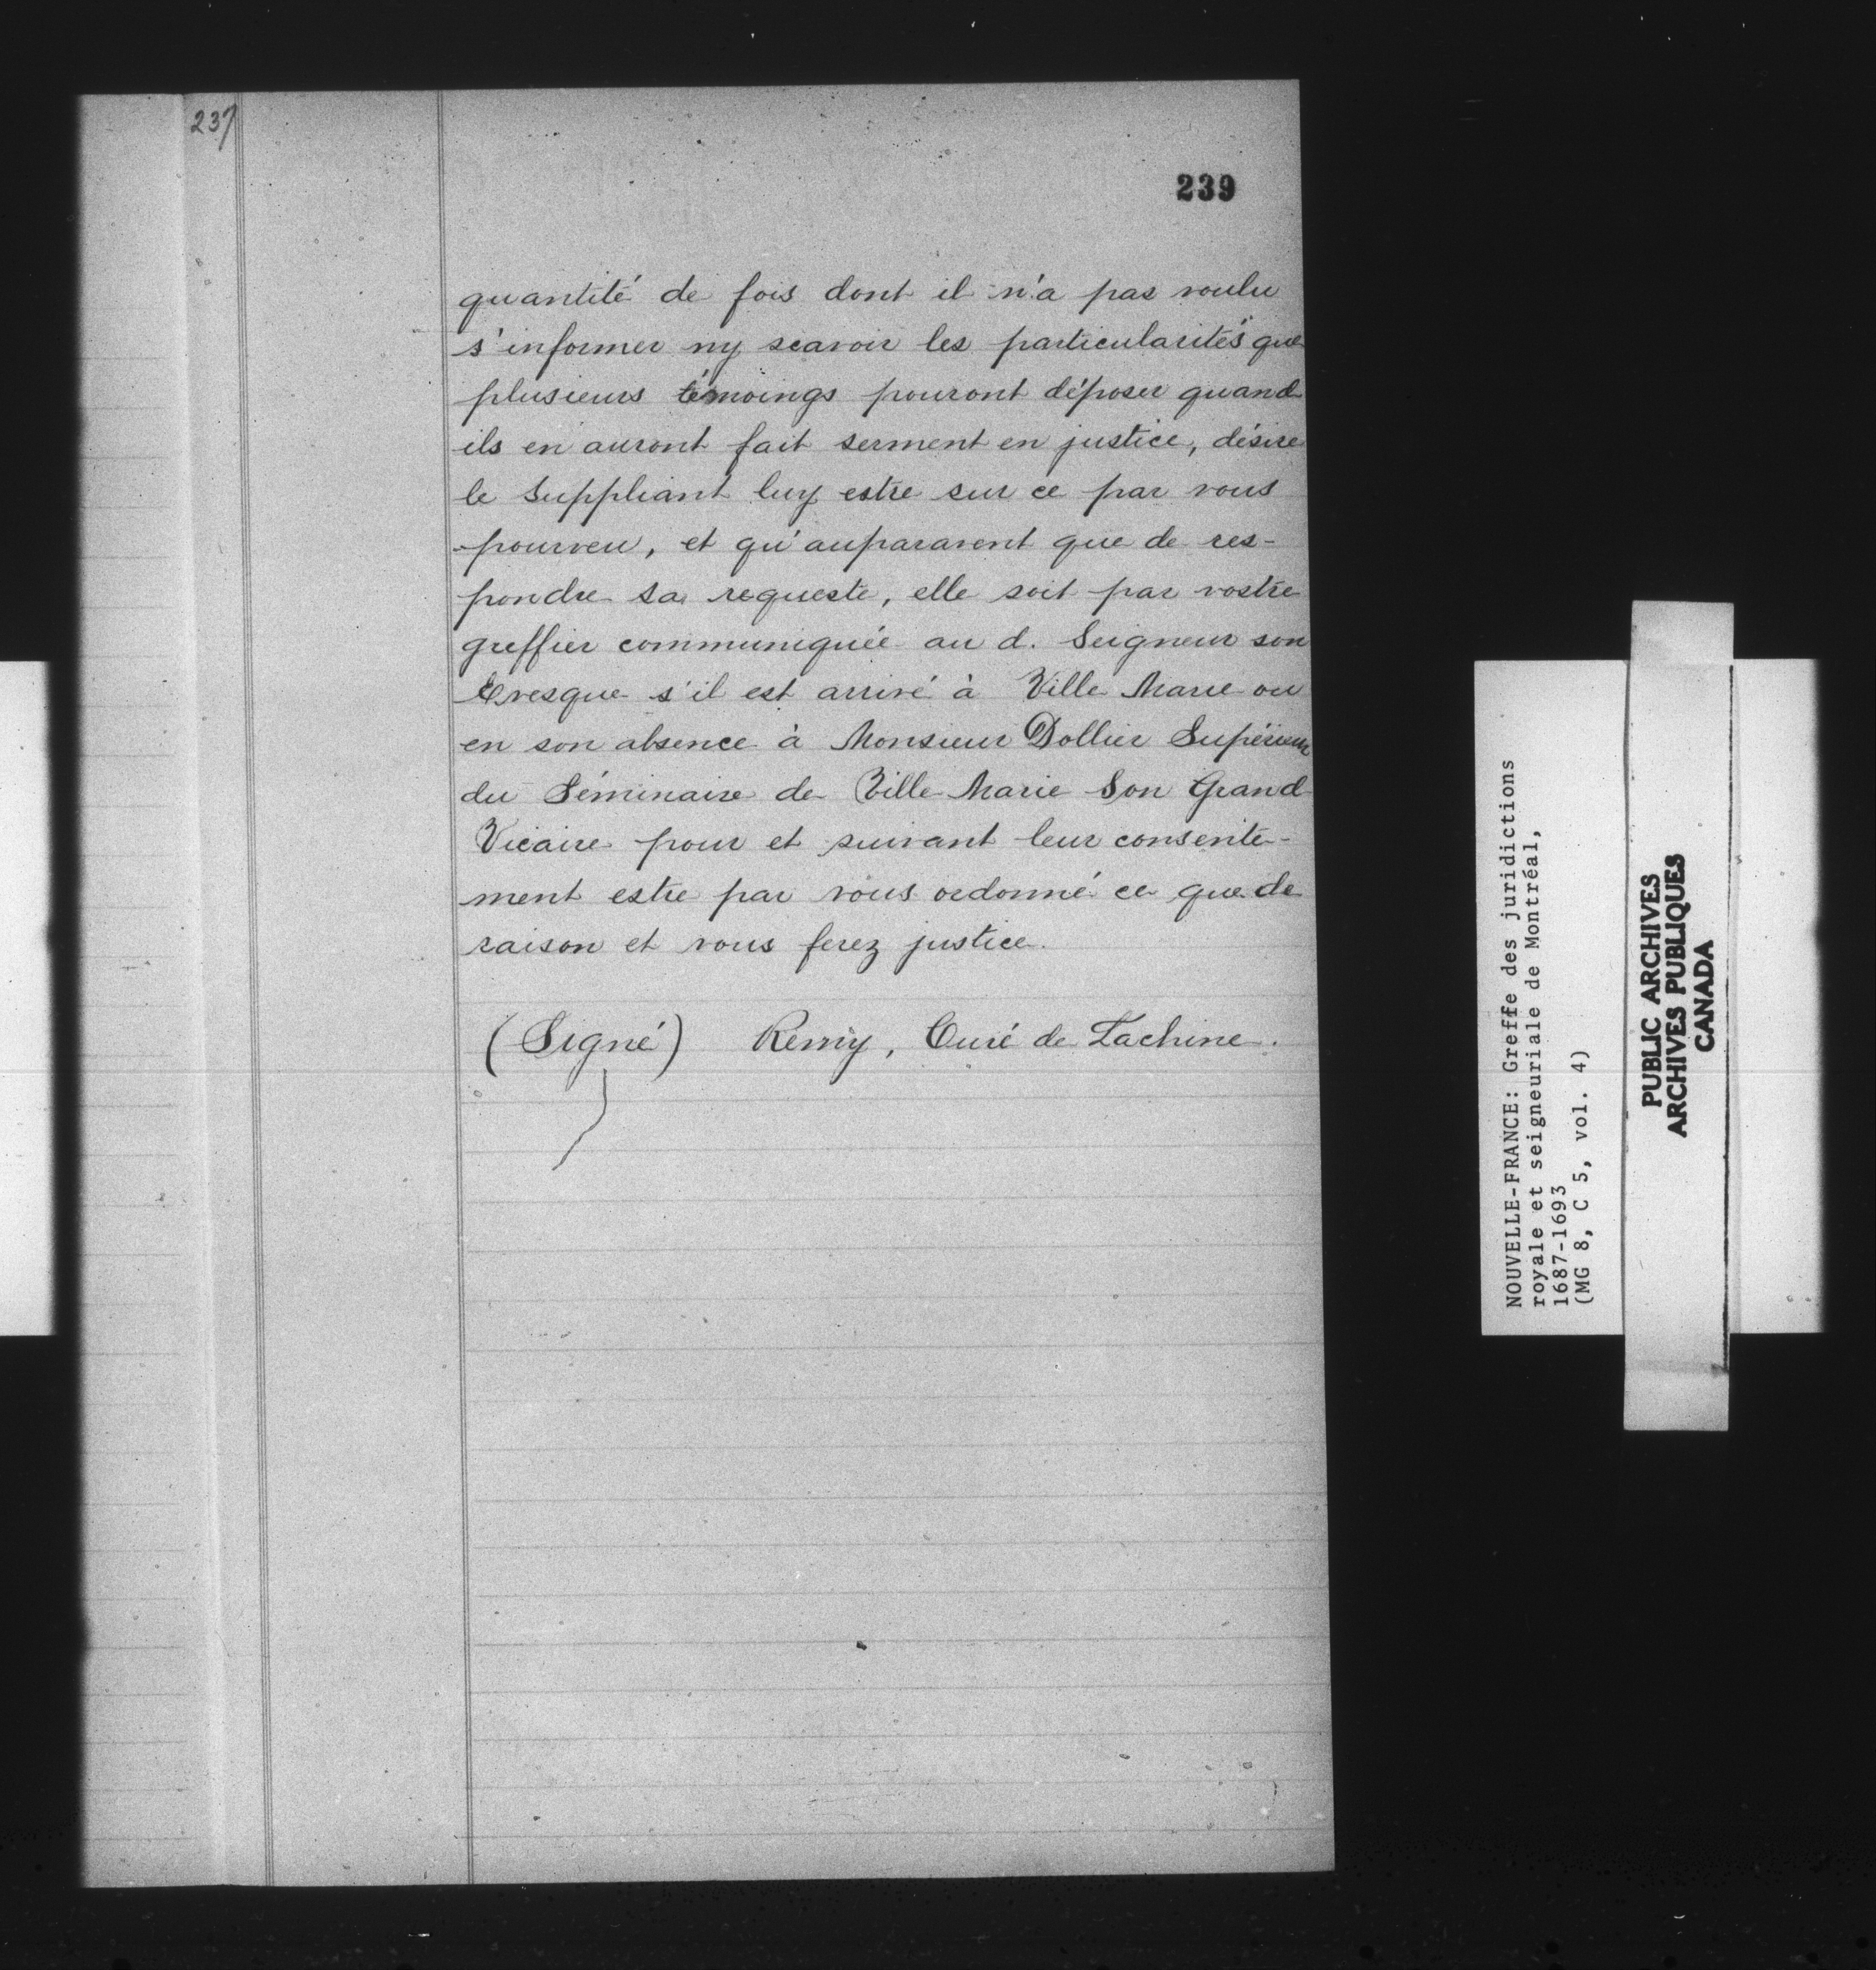 237
239
quantité de fois dont il n'a pas voulu
s'informer ny scavoir les particularités que
plusieurs témoings pouront déposer quand
ils en auront fait serment en justice, désire
le Suppliant luy estre sur ce par vous
pourveu, et qu'auparavent que de res-
pondre sa requeste, elle soit par vostre
greffier communiquée au d. Seigneur son
Evesque s'il est arrivé à Ville Marie ou
en son absence à Monsieur Dollier Supérieur
du Séminaire de Ville-Marie Son Grand
Vicaire pour et suivant leur consente-
ment estre par vous ordonné ce que de
raison et vous ferez justice.
(Signé) Remy, Curé de Lachine.
NOUVELLE-FRANCE: Greffe des juridictions
royale et seigneuriale de Montréal,
1687-1693
(MG 8, C 5, vol. 4)
PUBLIC ARCHIVES
ARCHIVES PUBLIQUES
CANADA